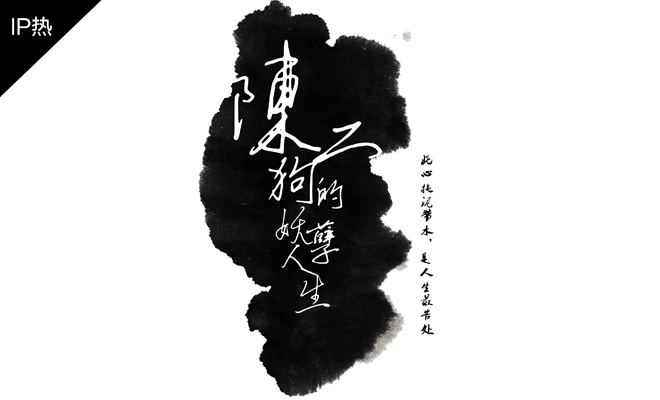 IP热
陳二狗的妖孽人生
此心拖泥带水，是人生最苦处